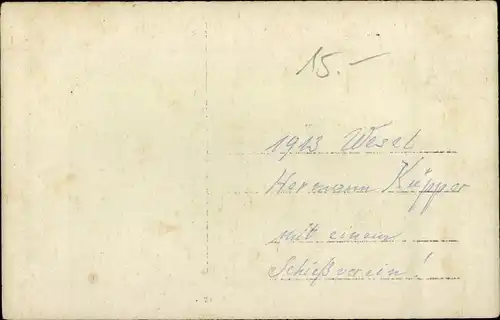 15.-
1913 Wesel
Hermann Küpper
mit einem
Schießverein!